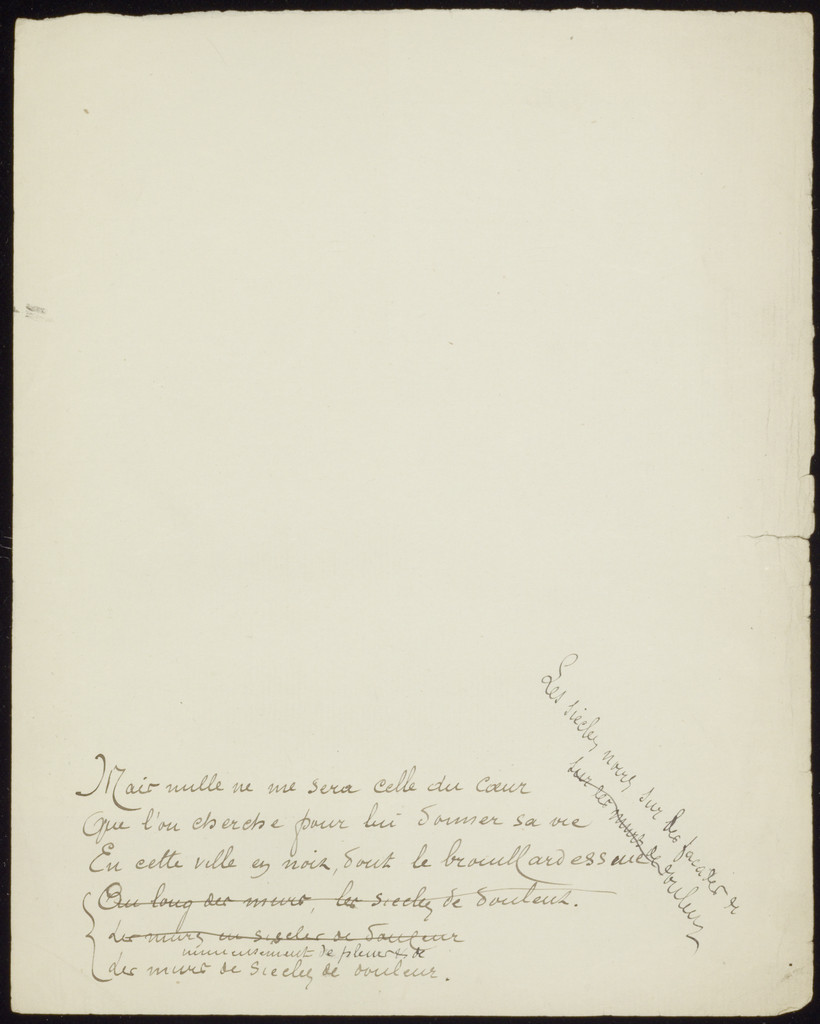 Mais nulle ne me sera celle du cœur
Que l'on cherche pour lui donner sa vie
En cette ville en noir, dont le brouillard essuie
Au long des murs, les siecles de douleur.
des murs en siecles de douleur
de pleurs & de
des murs de siecles de douleur.
Les siecles noirs sur les facades de
sur les murs de douleur